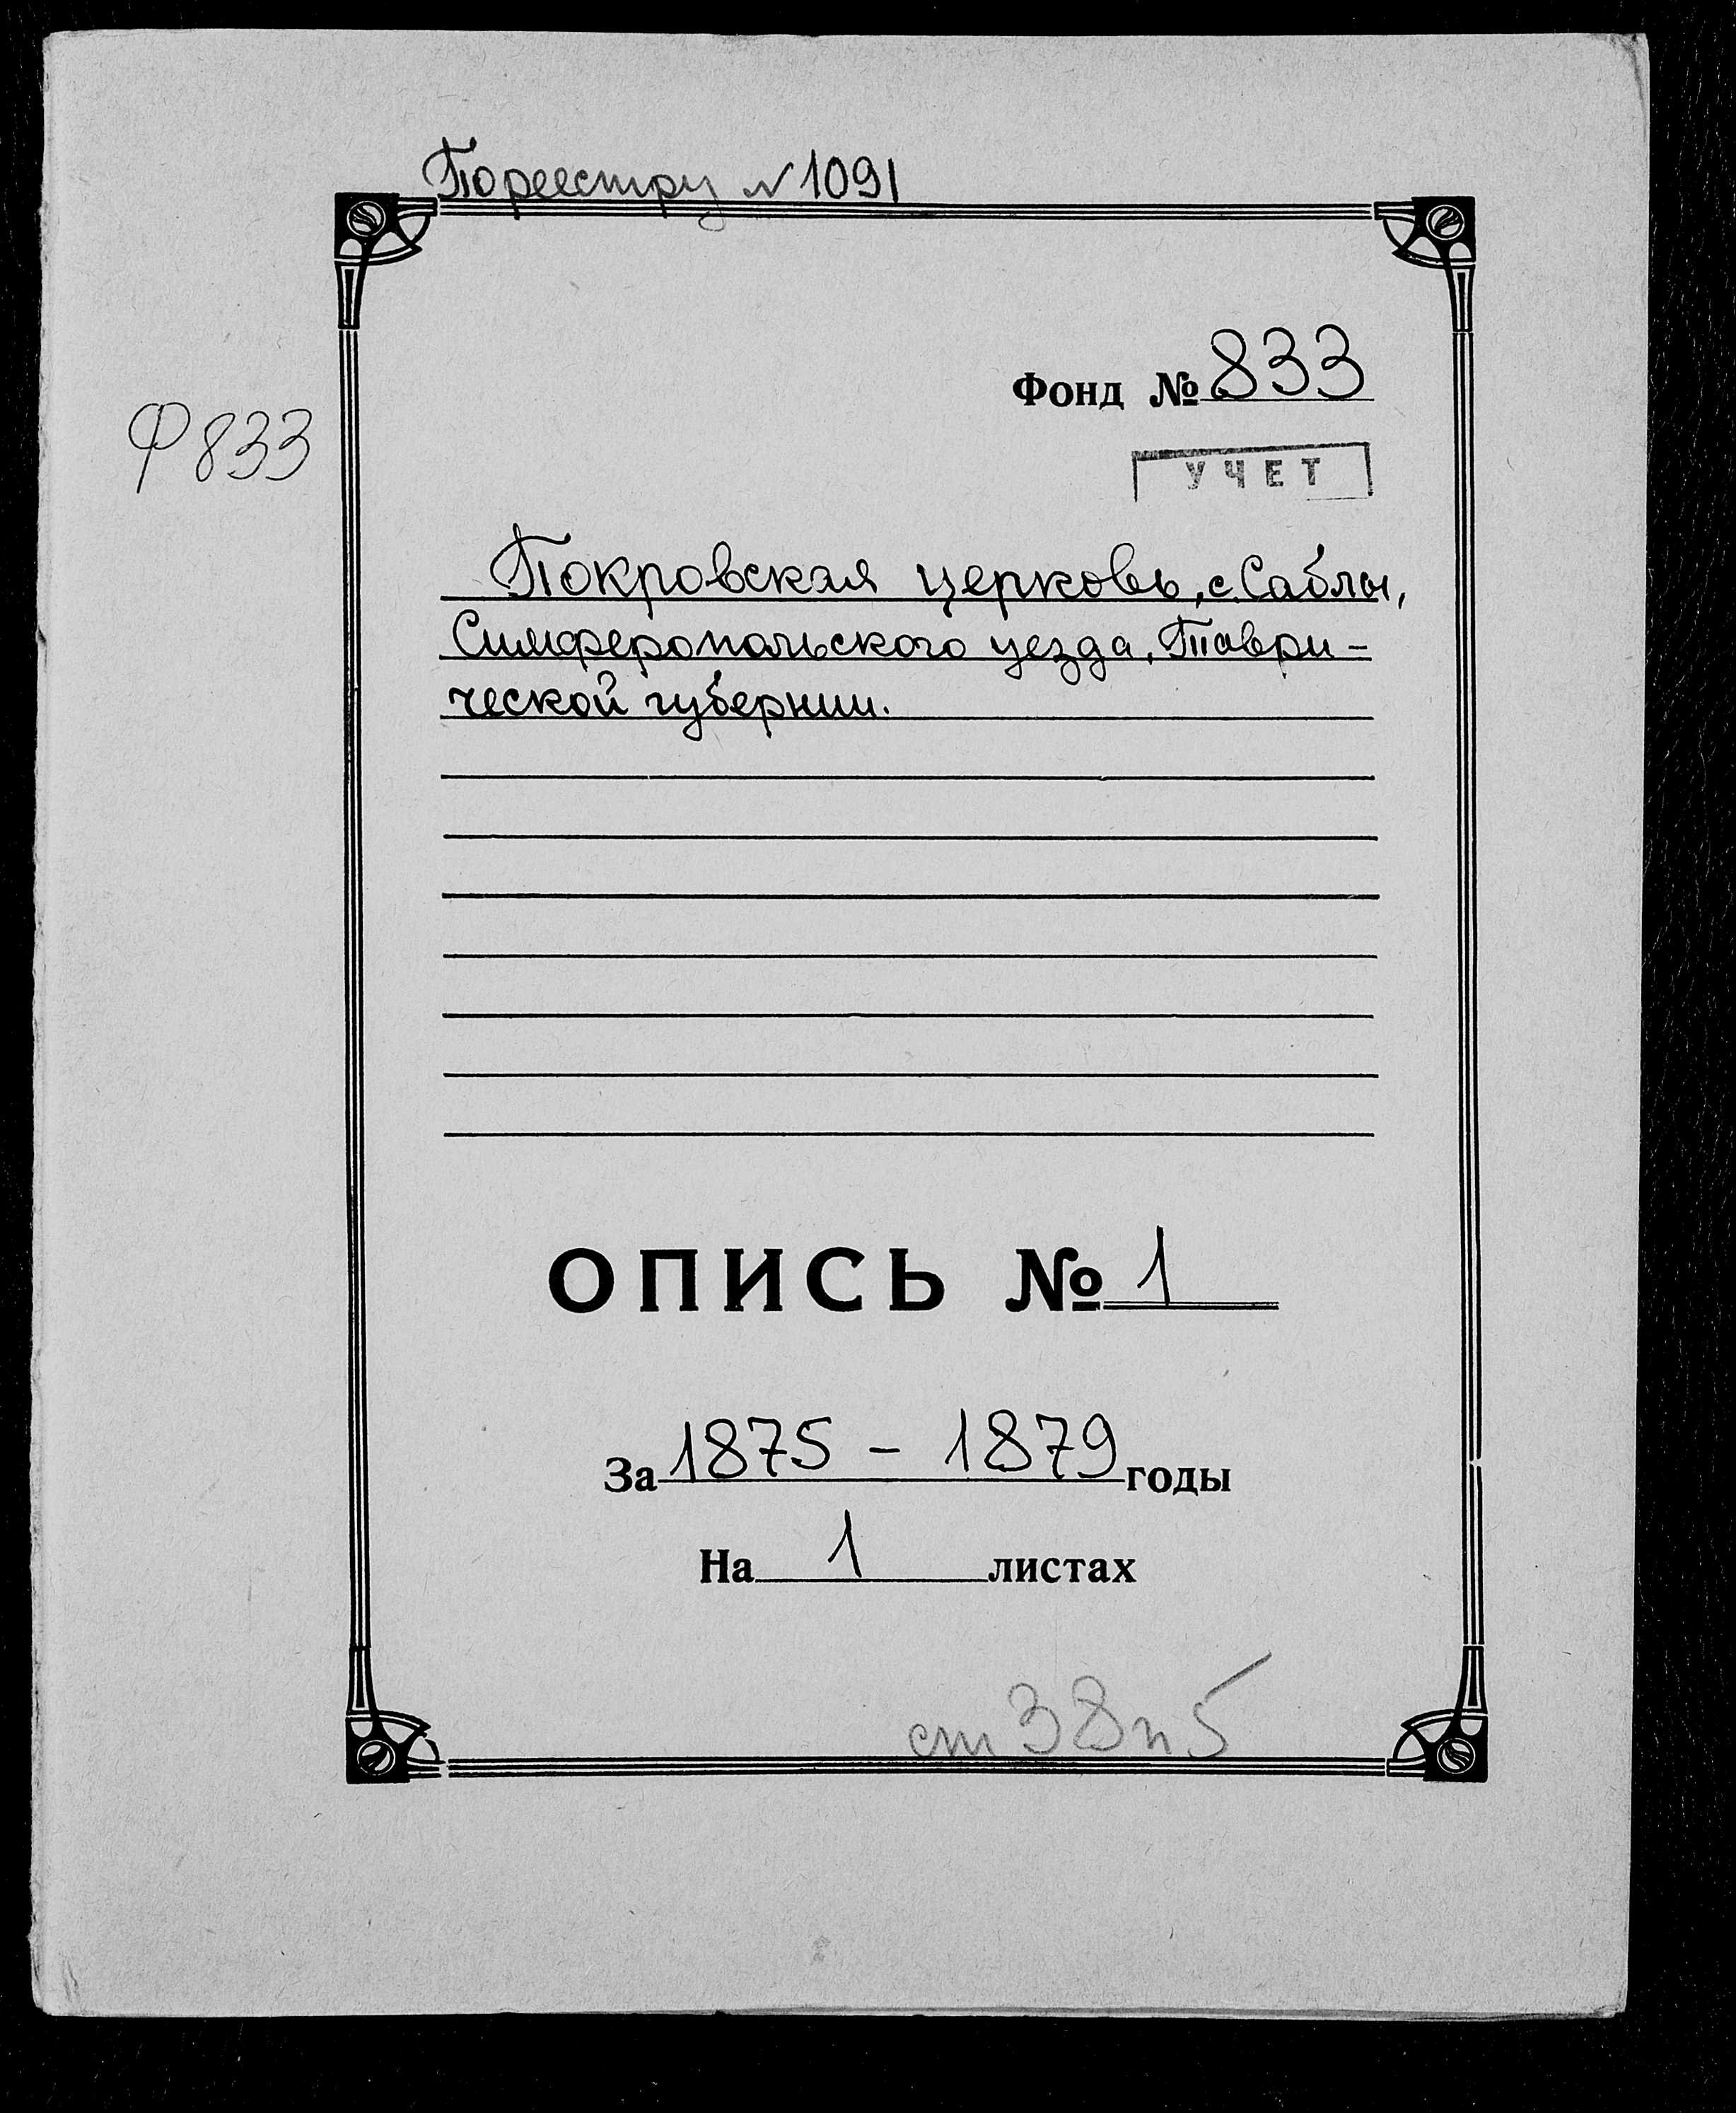 По реестру №1091
Фонд № 833
Ф 833
УЧЕТ
Покровская церковь, с. Саблы,
Симферопольского уезда, Таври-
ческой губернии.
ОПИСЬ № 1
За 1875 - 1879 годы
На 1 листах
ст 38 п 5